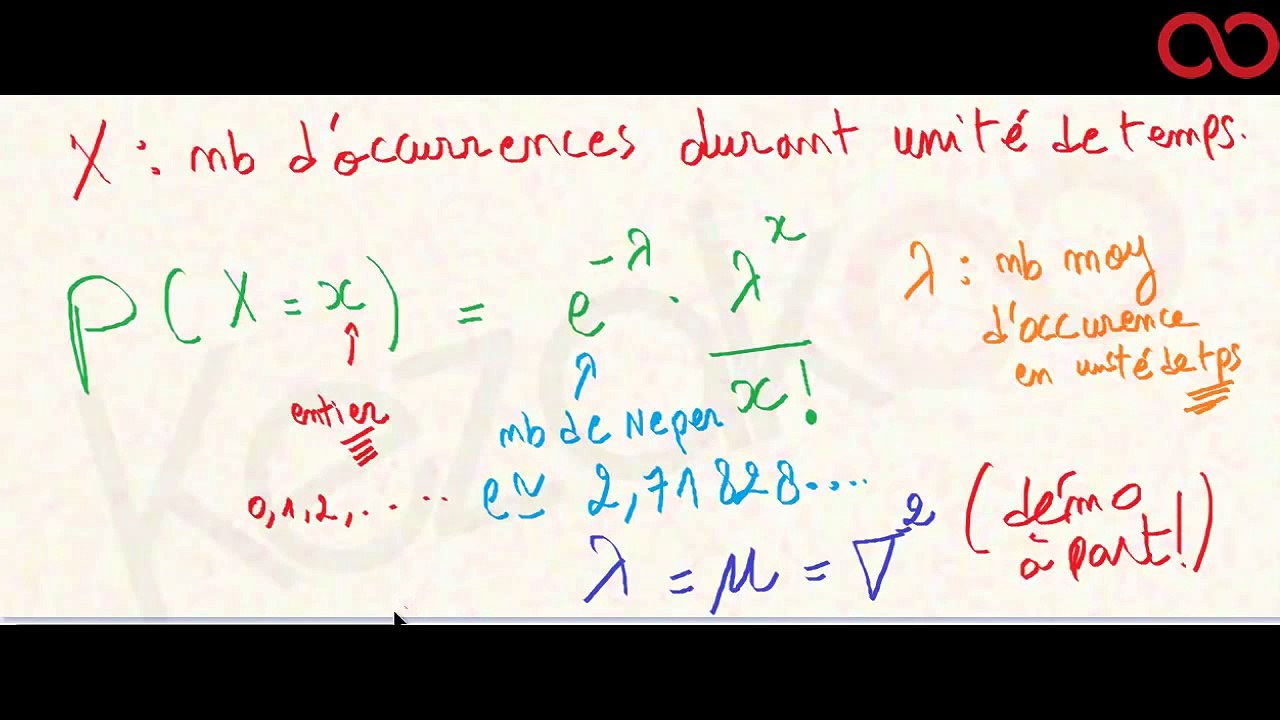 X : nb d'occurrences durant unité de temps.
P(X = x) = e^{-λ} · λ^x / x!
λ : nb moy
d'occurence
en unité de tps
entier
0,1,2,.....
nb de Neper
e ≃ 2,71828....
λ = μ = ∇²
(démo
à part!)
Kezakoo